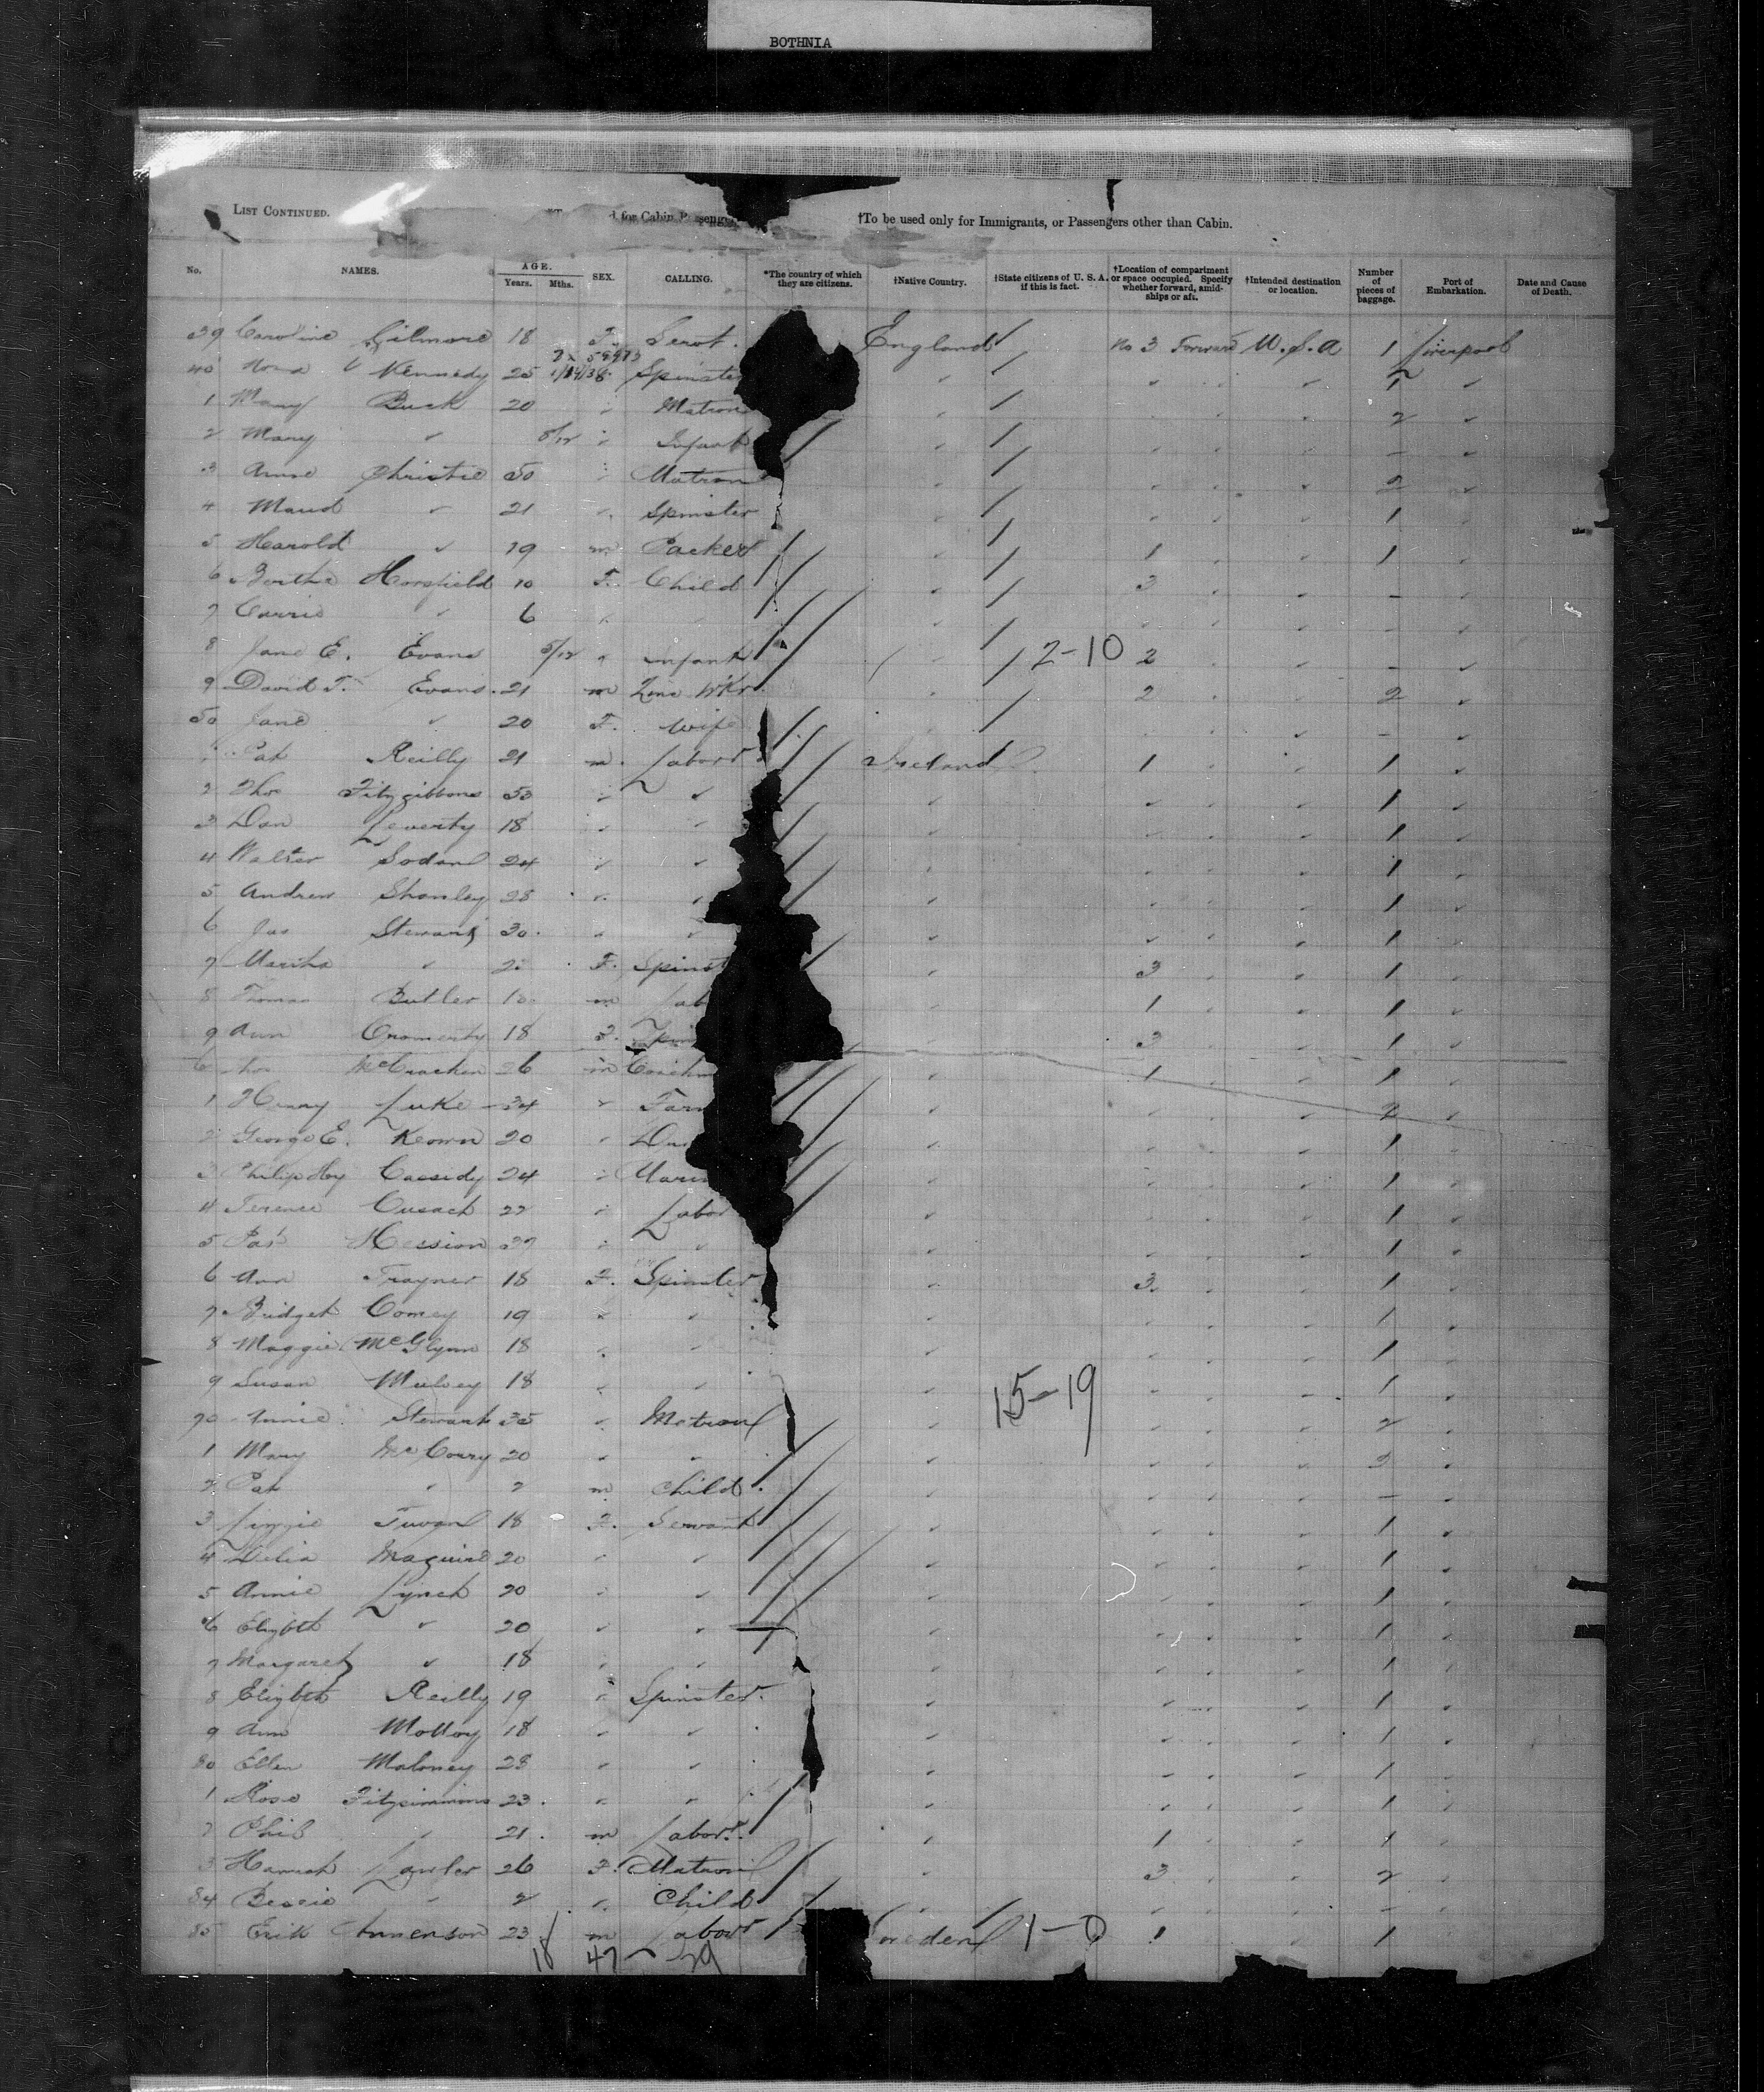 BOTHNIA
LIST CONTINUED. d for Cabin Passenge †To be used only for Immigrants, or Passengers other than Cabin.
No. NAMES. AGE. Years. Mths. SEX. CALLING. *The country of which they are citizens. †Native Country. †State citizens of U. S. A. if this is fact. †Location of compartment or space occupied. Specify whether forward, amidships or aft. †Intended destination or location. Number of pieces of baggage. Port of Embarkation. Date and Cause of Death.
39 Caroline Gilmore 18 F. Servt. England No 3 Forward U.S.A 1 Liverpool
40 Kennedy 25 Spinste 1
1 Mary Buck 20 Matron 2
2 Mary " 8/12 Infant –
3 Anne Christie 50 Matron 2
4 Maud " 21 Spinster 1
5 Harold " 19 m Packer 1 1
6 Bertha Horsfield 10 F. Child 3 –
7 Carrie " 6 –
8 Jane E. Evans 5/12 " Infant 2-10 2 –
9 David T. Evans 21 m Wkr. 2 2
50 Jane " 20 F. wife –
Pat Reilly 21 m. Labor Ireland 1 1
2 Thos Fitzgibbons 53 " 1
3 Dan Leverty 18 " 1
4 Walter Sodan 24 " 1
5 Andrew Shanley 28 " 1
6 Jas Stewart 30 " 1
7 Martha " F. Spinst 3 1
8 Thomas Butler m Lab 1 1
9 Ann Cromerty 18 F. Spin 3 1
McCracken 26 m Coachm 1 1
1 Henry Luke 34 " Farm 2
2 George E. Keown 20 " 1
3 Philip Hoy Cassidy 24 " Marin 1
4 Terence Cusack 22 " Labor 1
5 Pat Hession 27 " 1
6 Ann Traynor 18 F. Spinster 3 1
7 Bridget Comey 19 " " 1
8 Maggie McGlynn 18 " " 1
9 Susan Mulvey 18 " " 15-19 1
70 Annie Stewart 35 " Matron 2
1 Mary McCoury 20 " " 2
2 Pat " 2 m Child –
3 Lizzie 18 F. Servant 1
4 Delia Maguire 20 " " 1
5 Annie Lynch 20 " " 1
6 Elizbth " 20 " " 1
7 Margaret " 18 " " 1
8 Elizbth Reilly 19 " Spinster. 1
9 Ann Molloy 18 " " 1
80 Ellen Maloney 23 " " 1
1 Rose Fitzsimmons 23 " " 1
2 Phil " 21 m Labor. 1 1
3 Hannah Lawlor 26 F. Matron 3 2
84 Bessie " 2 " Child –
85 Erik 23 m Labor weden 1-0 1 1
18 47 – 29